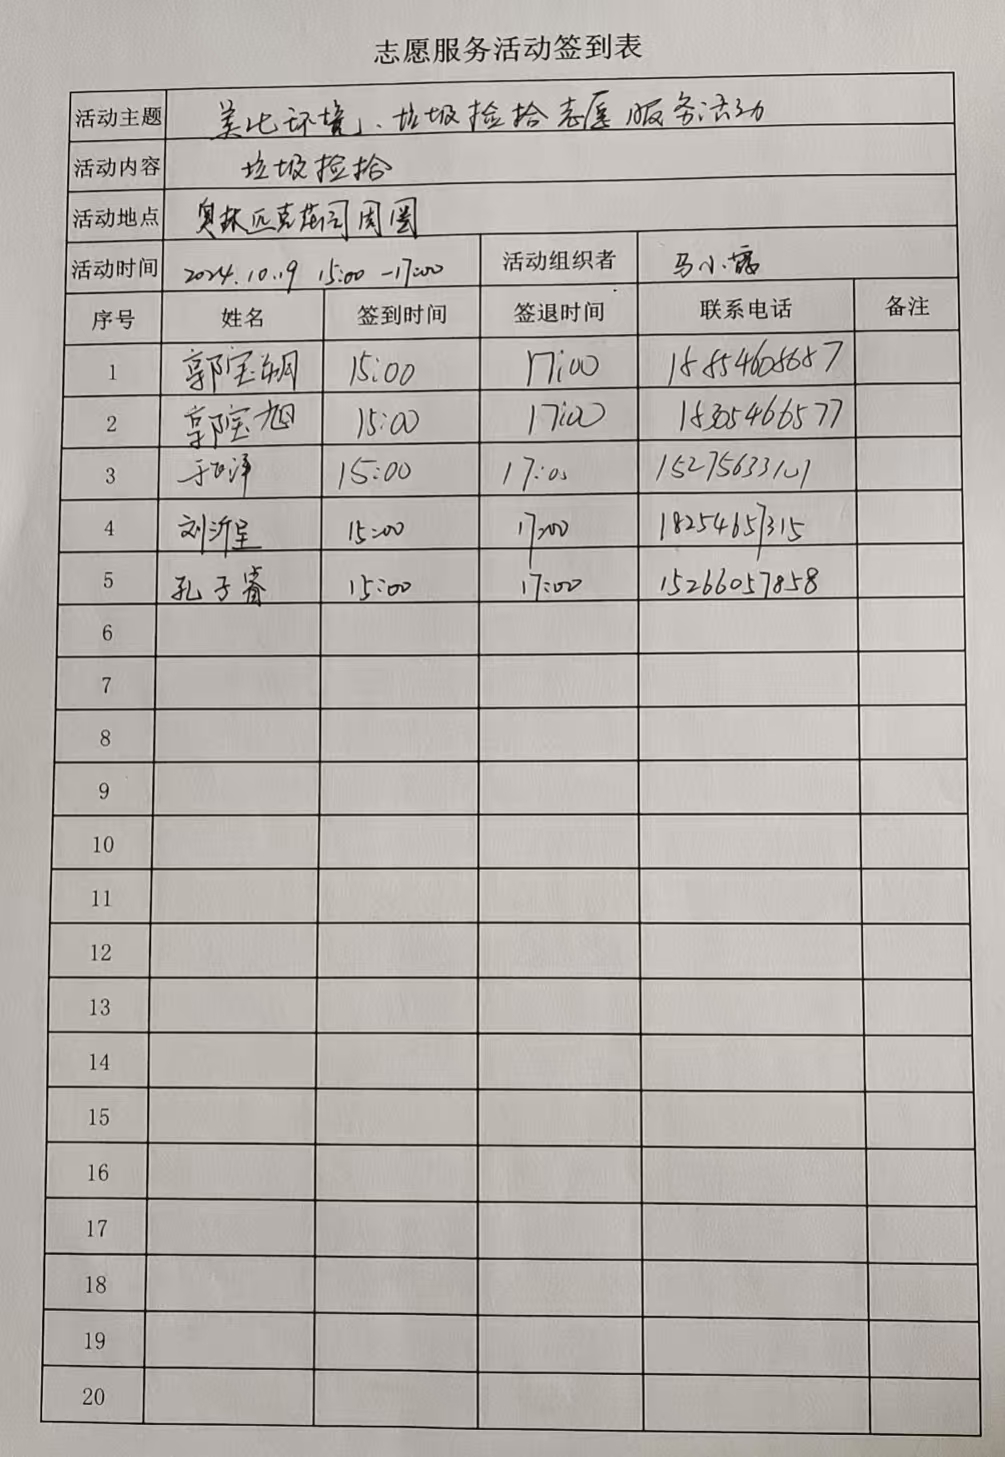 志愿服务活动签到表
活动主题 美化环境、垃圾捡拾志愿服务活动
活动内容 垃圾捡拾
活动地点 奥林匹克花园周围
活动时间 2024.10.19 15:00-17:00 活动组织者 马小露
序号 姓名 签到时间 签退时间 联系电话 备注
1 郭宝 15:00 17:00 18854608687
2 郭宝旭 15:00 17:00 18305466577
3 15:00 17:00
4 刘沂星 15:00 17:00 18254657315
5 孔子睿 15:00 17:00 15266057858
6
7
8
9
10
11
12
13
14
15
16
17
18
19
20